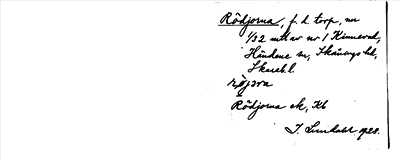 Rödjorna, f. d. torp, nu
1/32 mtl av nr 1 Kinnerud,
Händene sn, Skånings hd,
Skarab.l.
Rödjorna ek, Kb
J. Lundahl 1920.